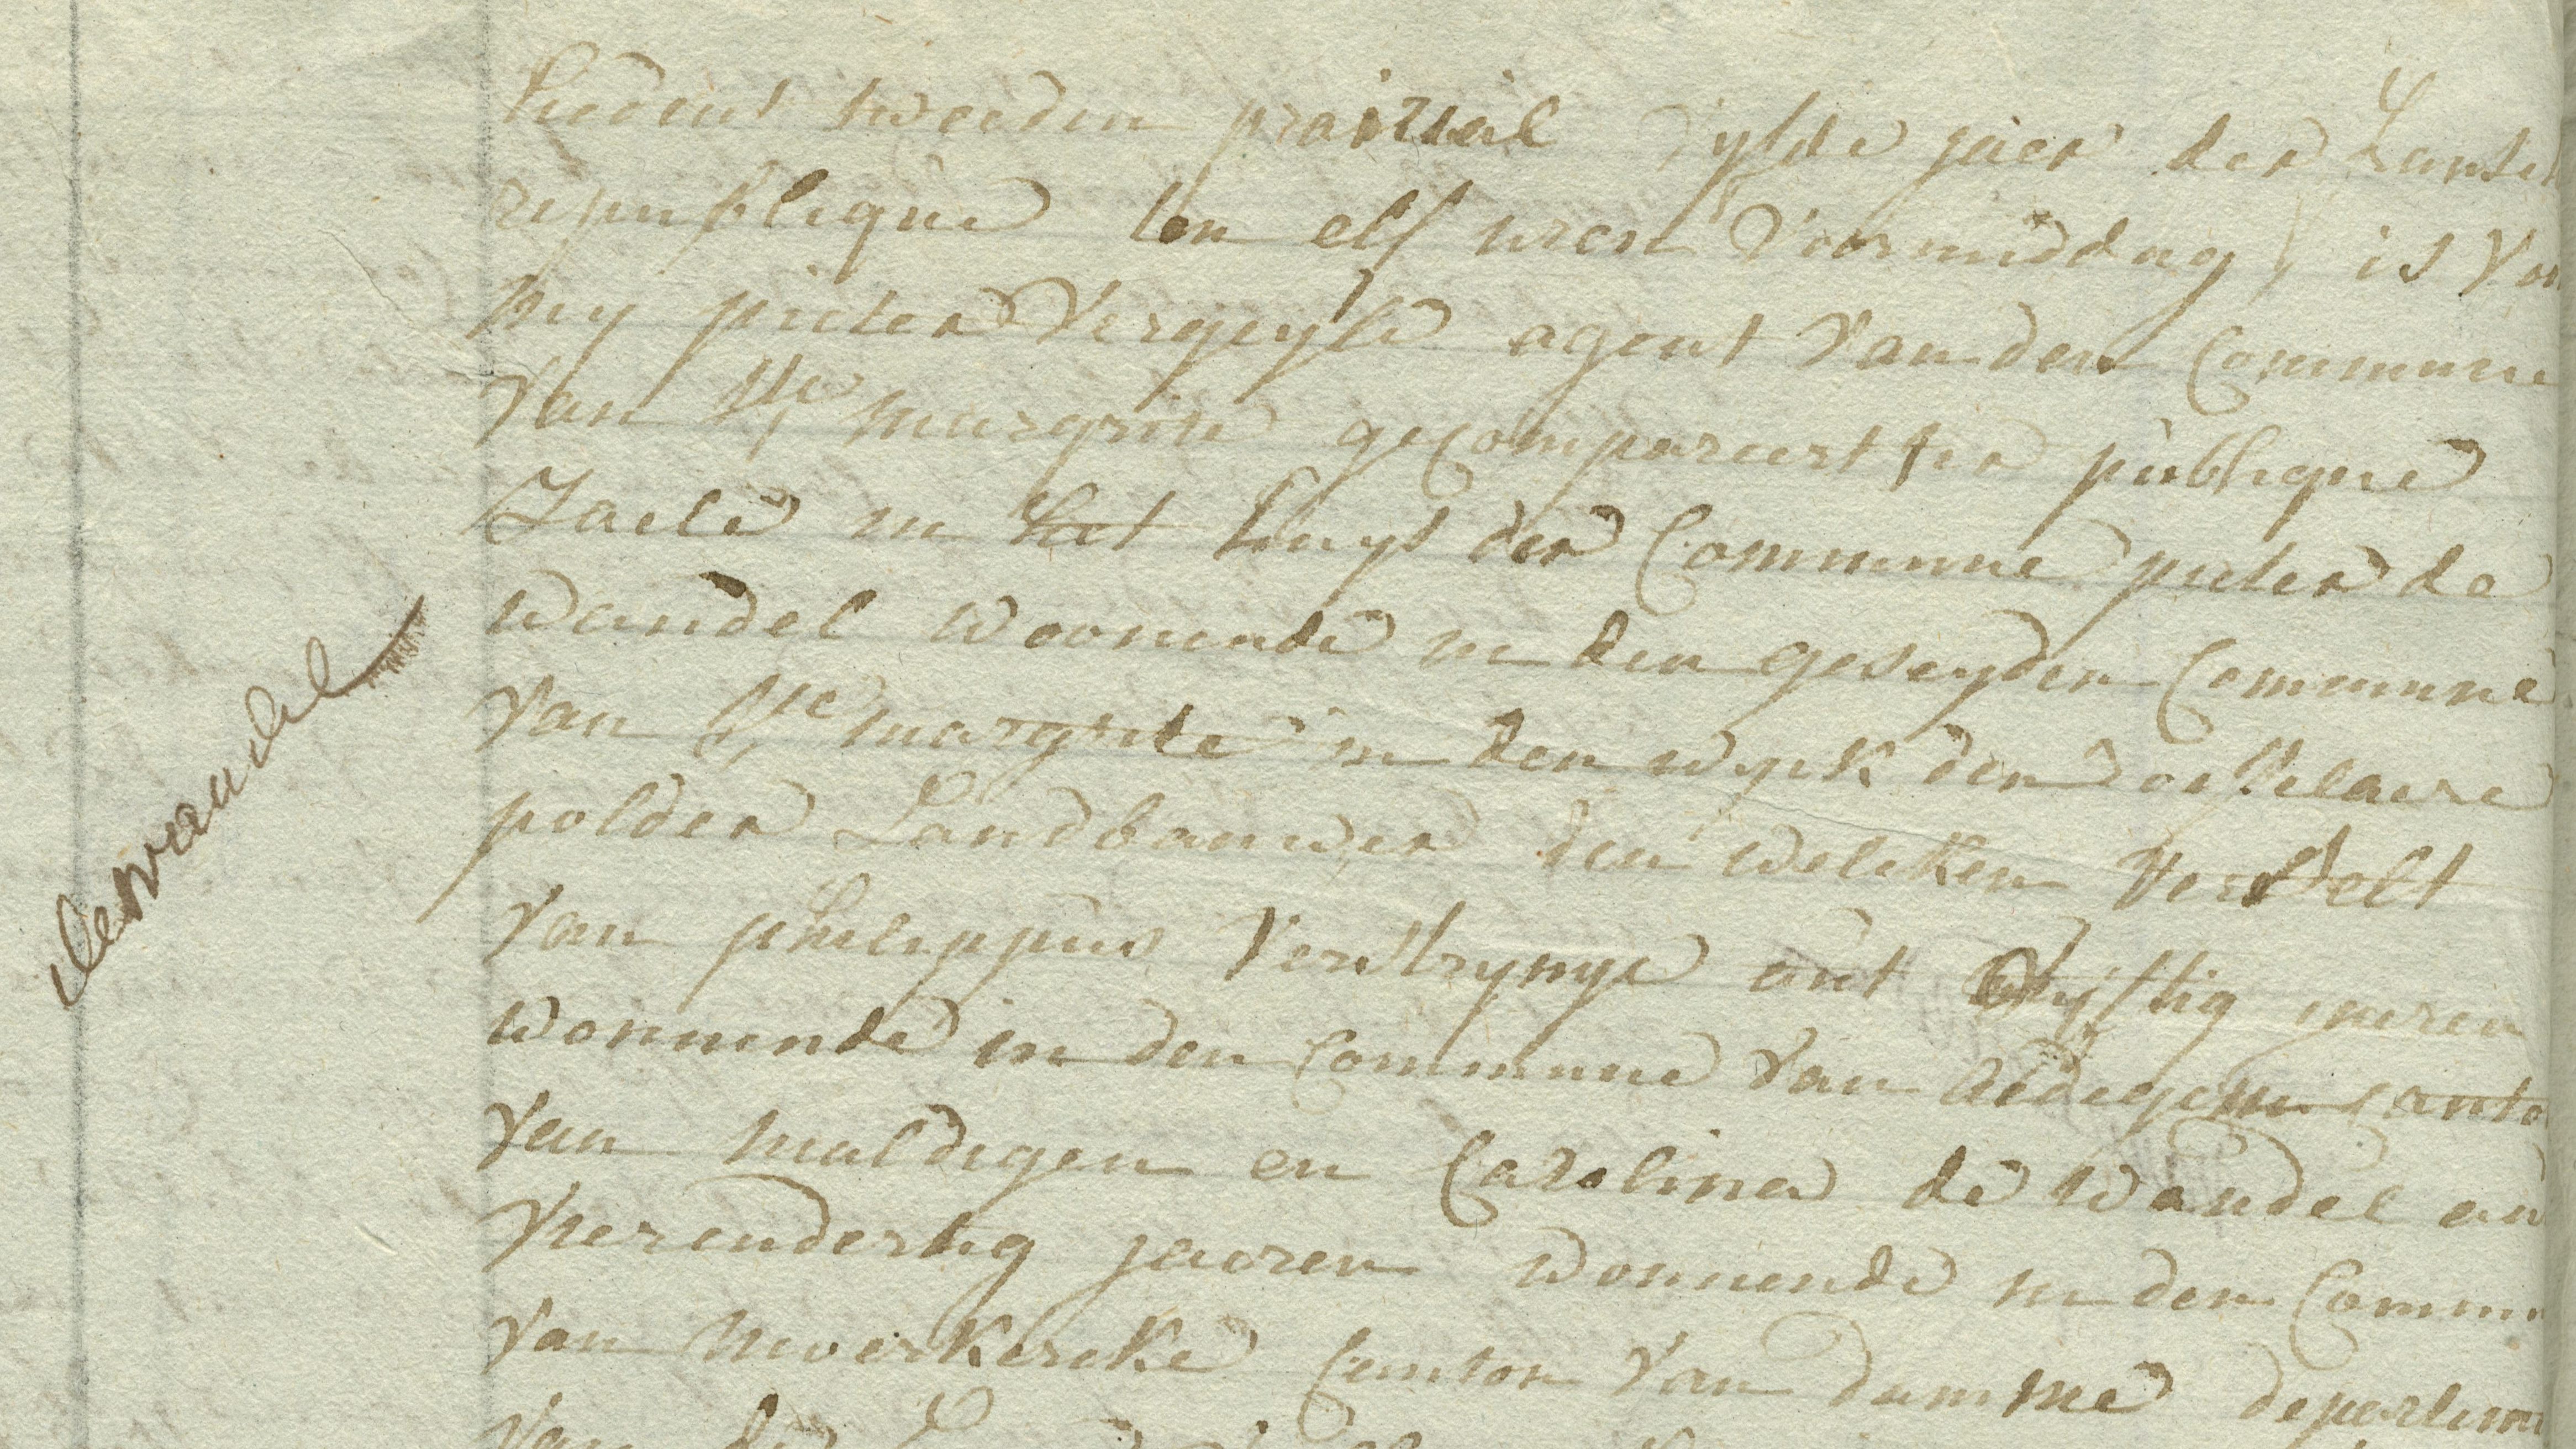 hedent tweeden prairial vyfde jaer der Franse
republique ten elf uren voormiddag is voor
my pieter Vergeyle agent van den Commune
van Ste margrite gecompareert ter publique
Zaele in het huys der Commune pieter de
wandel woonende in den geseyden Commune
van Ste margrite in den wyck den
polder Landbauwer den welcken verselt
van philippus Verstrynge out vyftig jaeren
wonnende in den Commune van Aedegem canto
van maldigen en Carolina de wandel out
vierendertig jaeren wonnende in den Commu
van moerkercke Canton van damme departeme
van de
dewandel